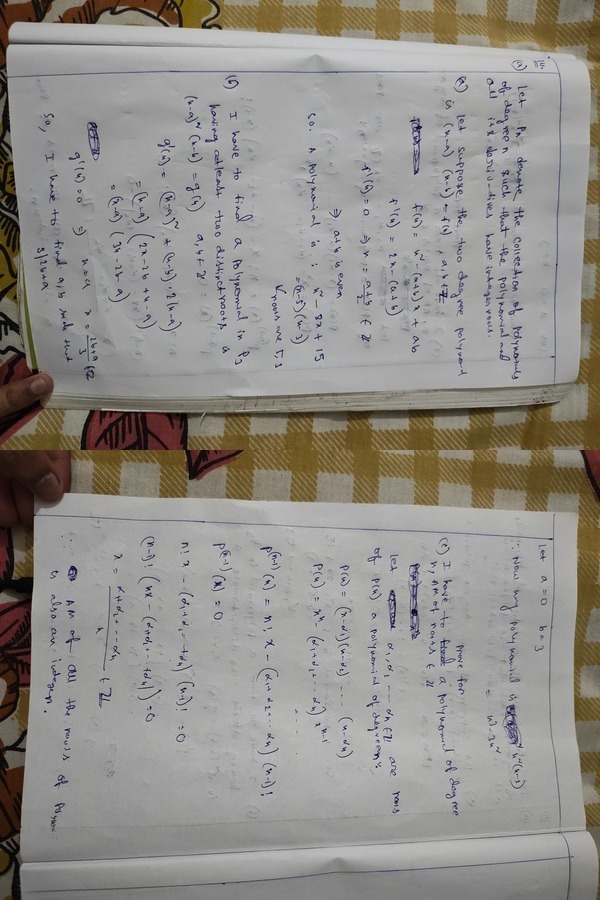 Let Pn denote the collection of polynomials
of degree n such that the polynomial and
all its derivatives have integer roots.
(a) Let suppose the two degree polynomial
is (x-a) (x-b) = f(x) , a,b ∈ Z
f(x) = x² - (a+b)x + ab
f'(x) = 2x - (a+b)
f'(x) = 0 ⇒ x = (a+b)/2 ∈ Z
⇒ a+b is even
So. A polynomial is : x² - 8x + 15
= (x-5) (x-3)
roots are 5,3
(b) I have to find a polynomial in P3
having atleast two distinct roots is
(x-a)² (x-b) = g(x) a,b ∈ Z
g'(x) = (x-a)² + (x-b) . 2(x-a)
= (x-a) (2x-2b+x-a)
= (x-a) (3x-2b-a)
g'(x) = 0 ⇒ x = a x = (2b+a)/3 ∈ Z
So, I have to find a,b such that
3/2b+a
Let a = 0 b = 3
∴ Now my polynomial is x²(x-3)
= x³-3x²
(c) I have to prove for a polynomial of degree
n, AM of roots ∈ Z
Let α1, α2, ... αn ∈ Z are roots
of P(x) a polynomial of degree n,
P(x) = (x-α1)(x-α2) .... (x-αn)
P(x) = xⁿ - (α1+α2+... αn) xⁿ⁻¹
....
P⁽ⁿ⁻¹⁾(x) = n! x - (α1+α2+...αn) (n-1)!
P⁽ⁿ⁻¹⁾(x) = 0
n! x - (α1+α2+...+αn) (n-1)! = 0
(n-1)! (nx - (α1+α2...+αn)) = 0
x = (α1+α2+...αn)/n ∈ Z
∴ AM of all the roots of
is also an integer.